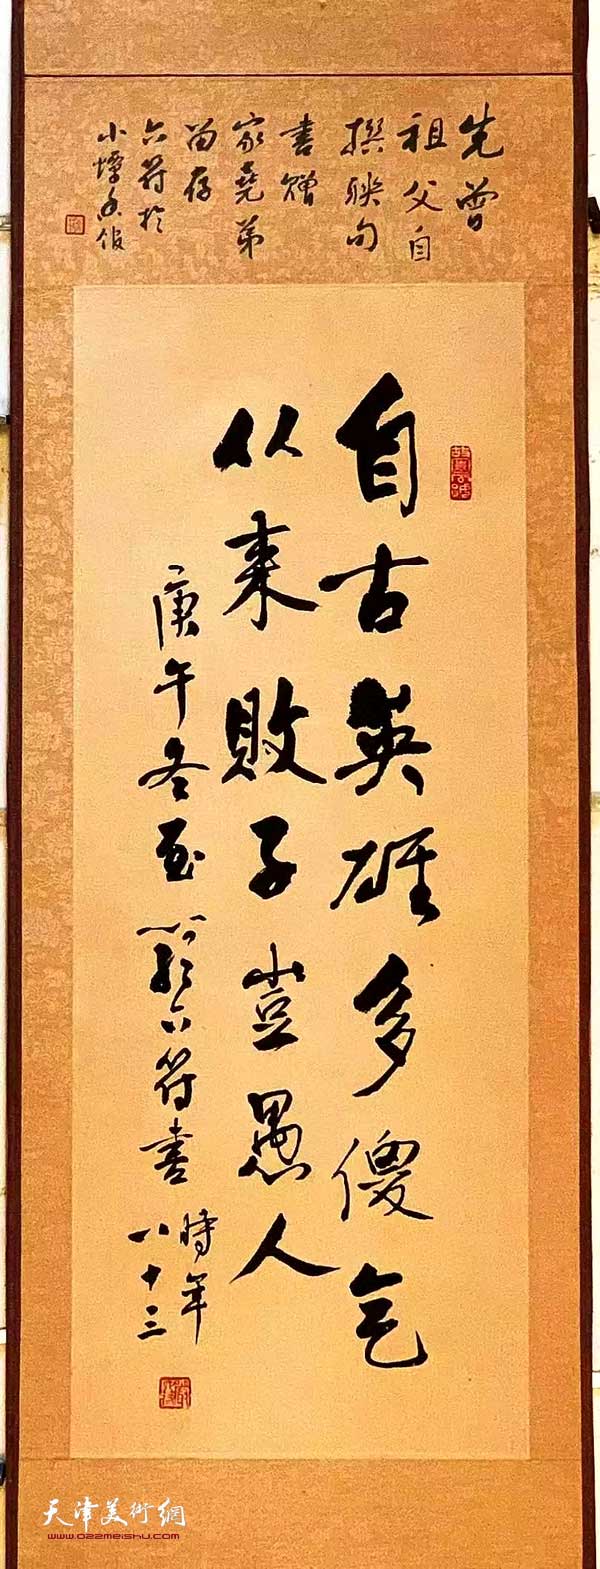 先曾
祖父自
撰联句
書贈
家堯弟
留存
六符於
小
自古英雄多傻气
从来敗子豈愚人
庚午冬至 六符書
時年
八十三
天津美術網
www.022meishu.com